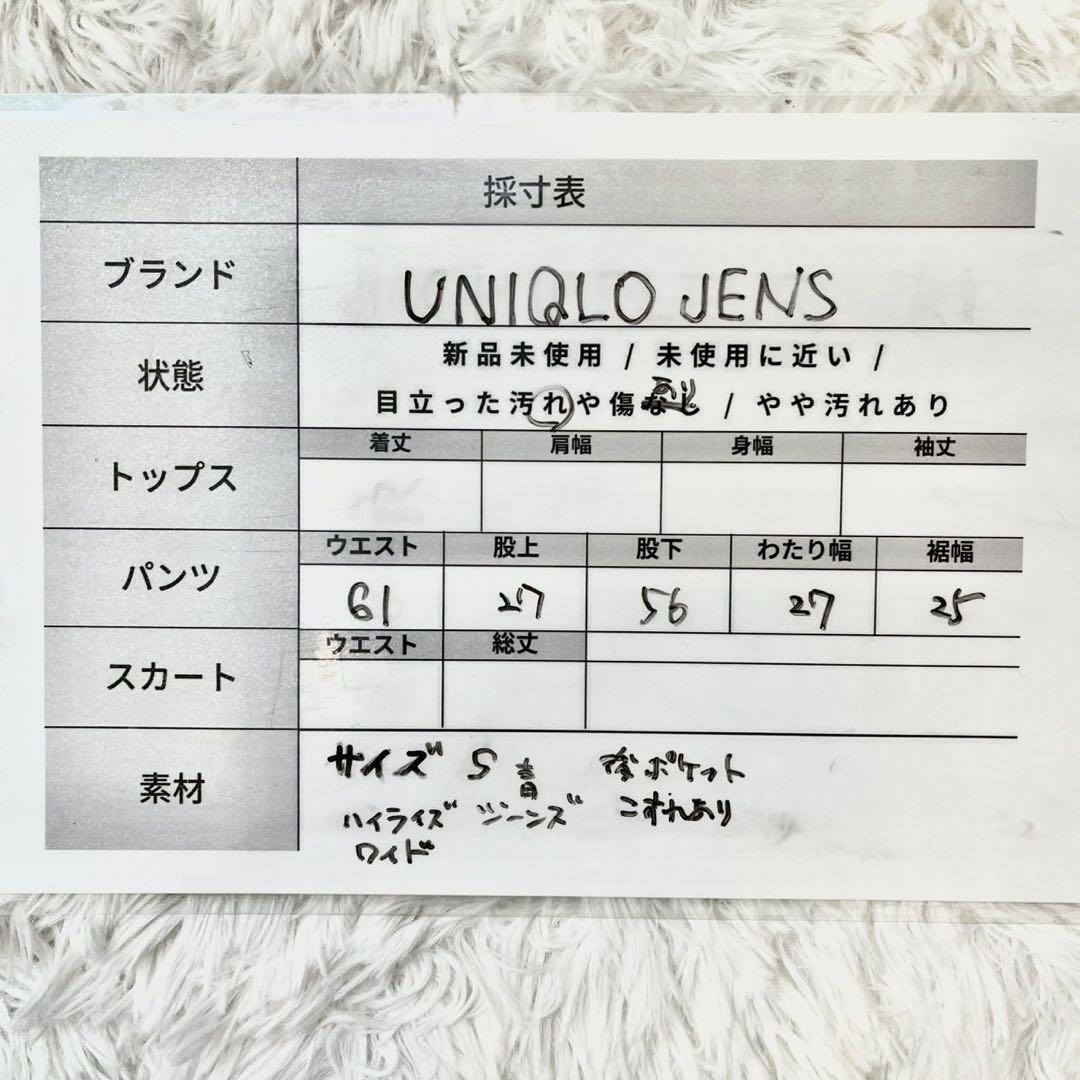 採寸表
ブランド
UNIQLO JENS
状態
新品未使用 / 未使用に近い /
目立った汚れや傷 / やや汚れあり
トップス
着丈 肩幅 身幅 袖丈
パンツ
ウエスト 股上 股下 わたり幅 裾幅
61 27 56 27 25
スカート
ウエスト 総丈
素材
サイズ S 青 ポケット
ハイライズ ジーンズ こすれあり
ワイド